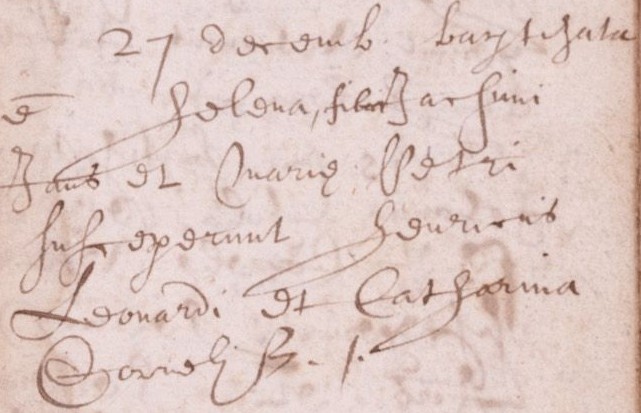 27 decemb. baptizata
ē helena, filia Jachimi
Jans et Marię Petri
susceperunt henricus
Leonardi et Catharina
Cornelii